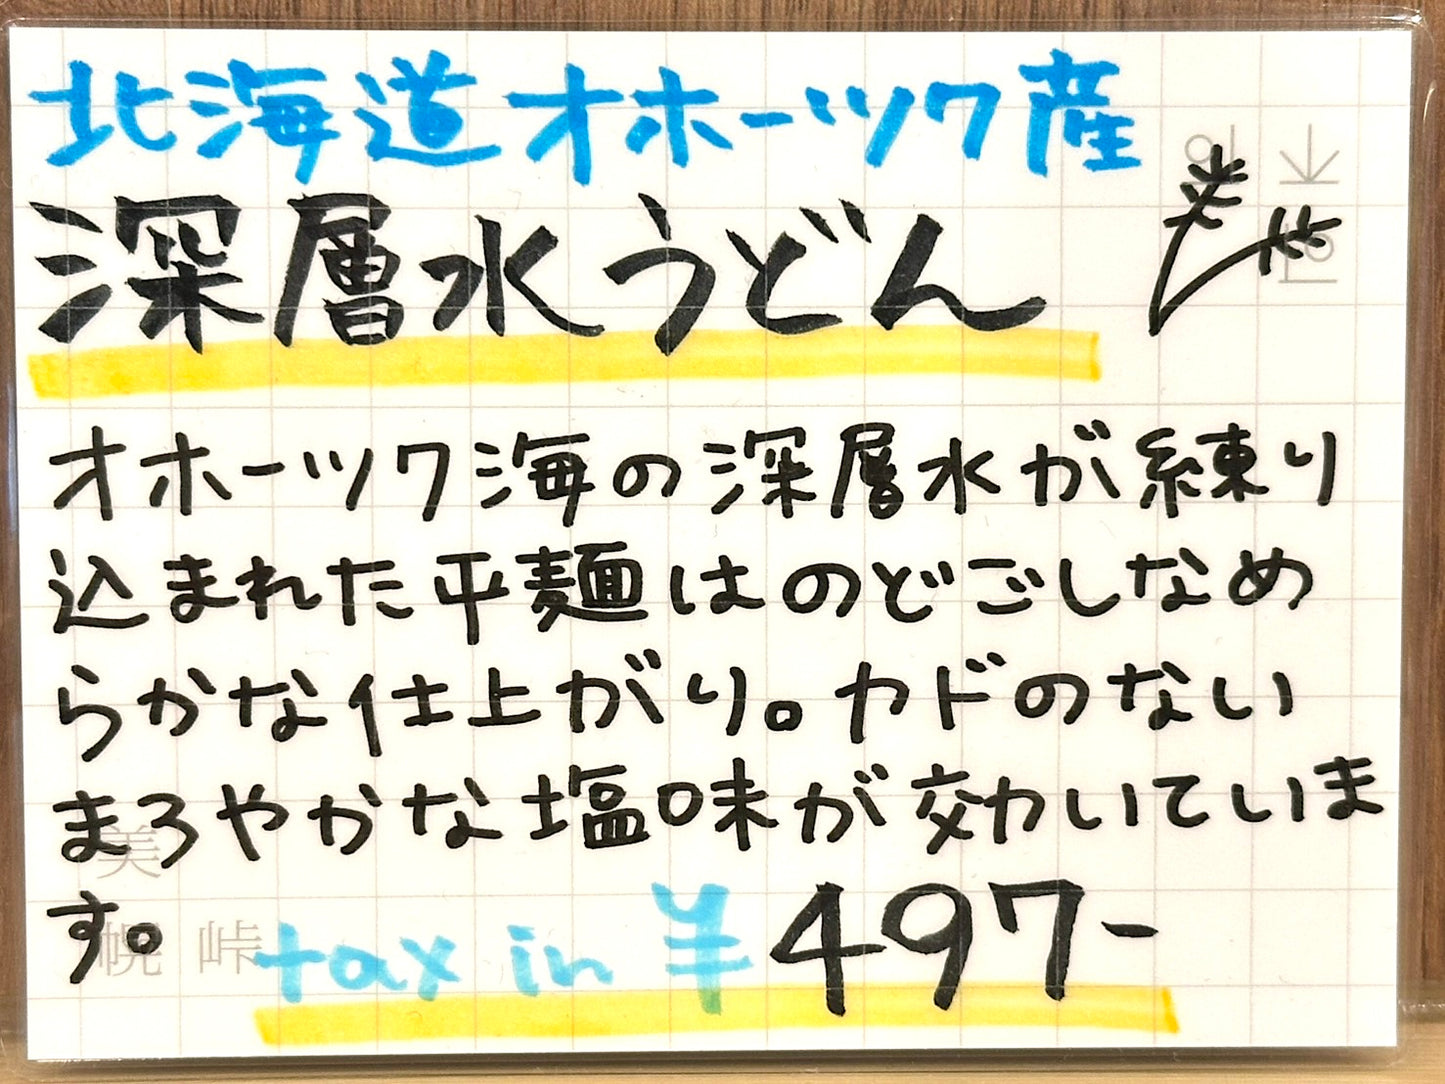 北海道オホーツク産
深層水うどん
オホーツク海の深層水が練り
込まれた平麺はのどごしなめ
らかな仕上がり。カドのない
まろやかな塩味が効いていま
す。
tax in ¥497-
美
幌 峠